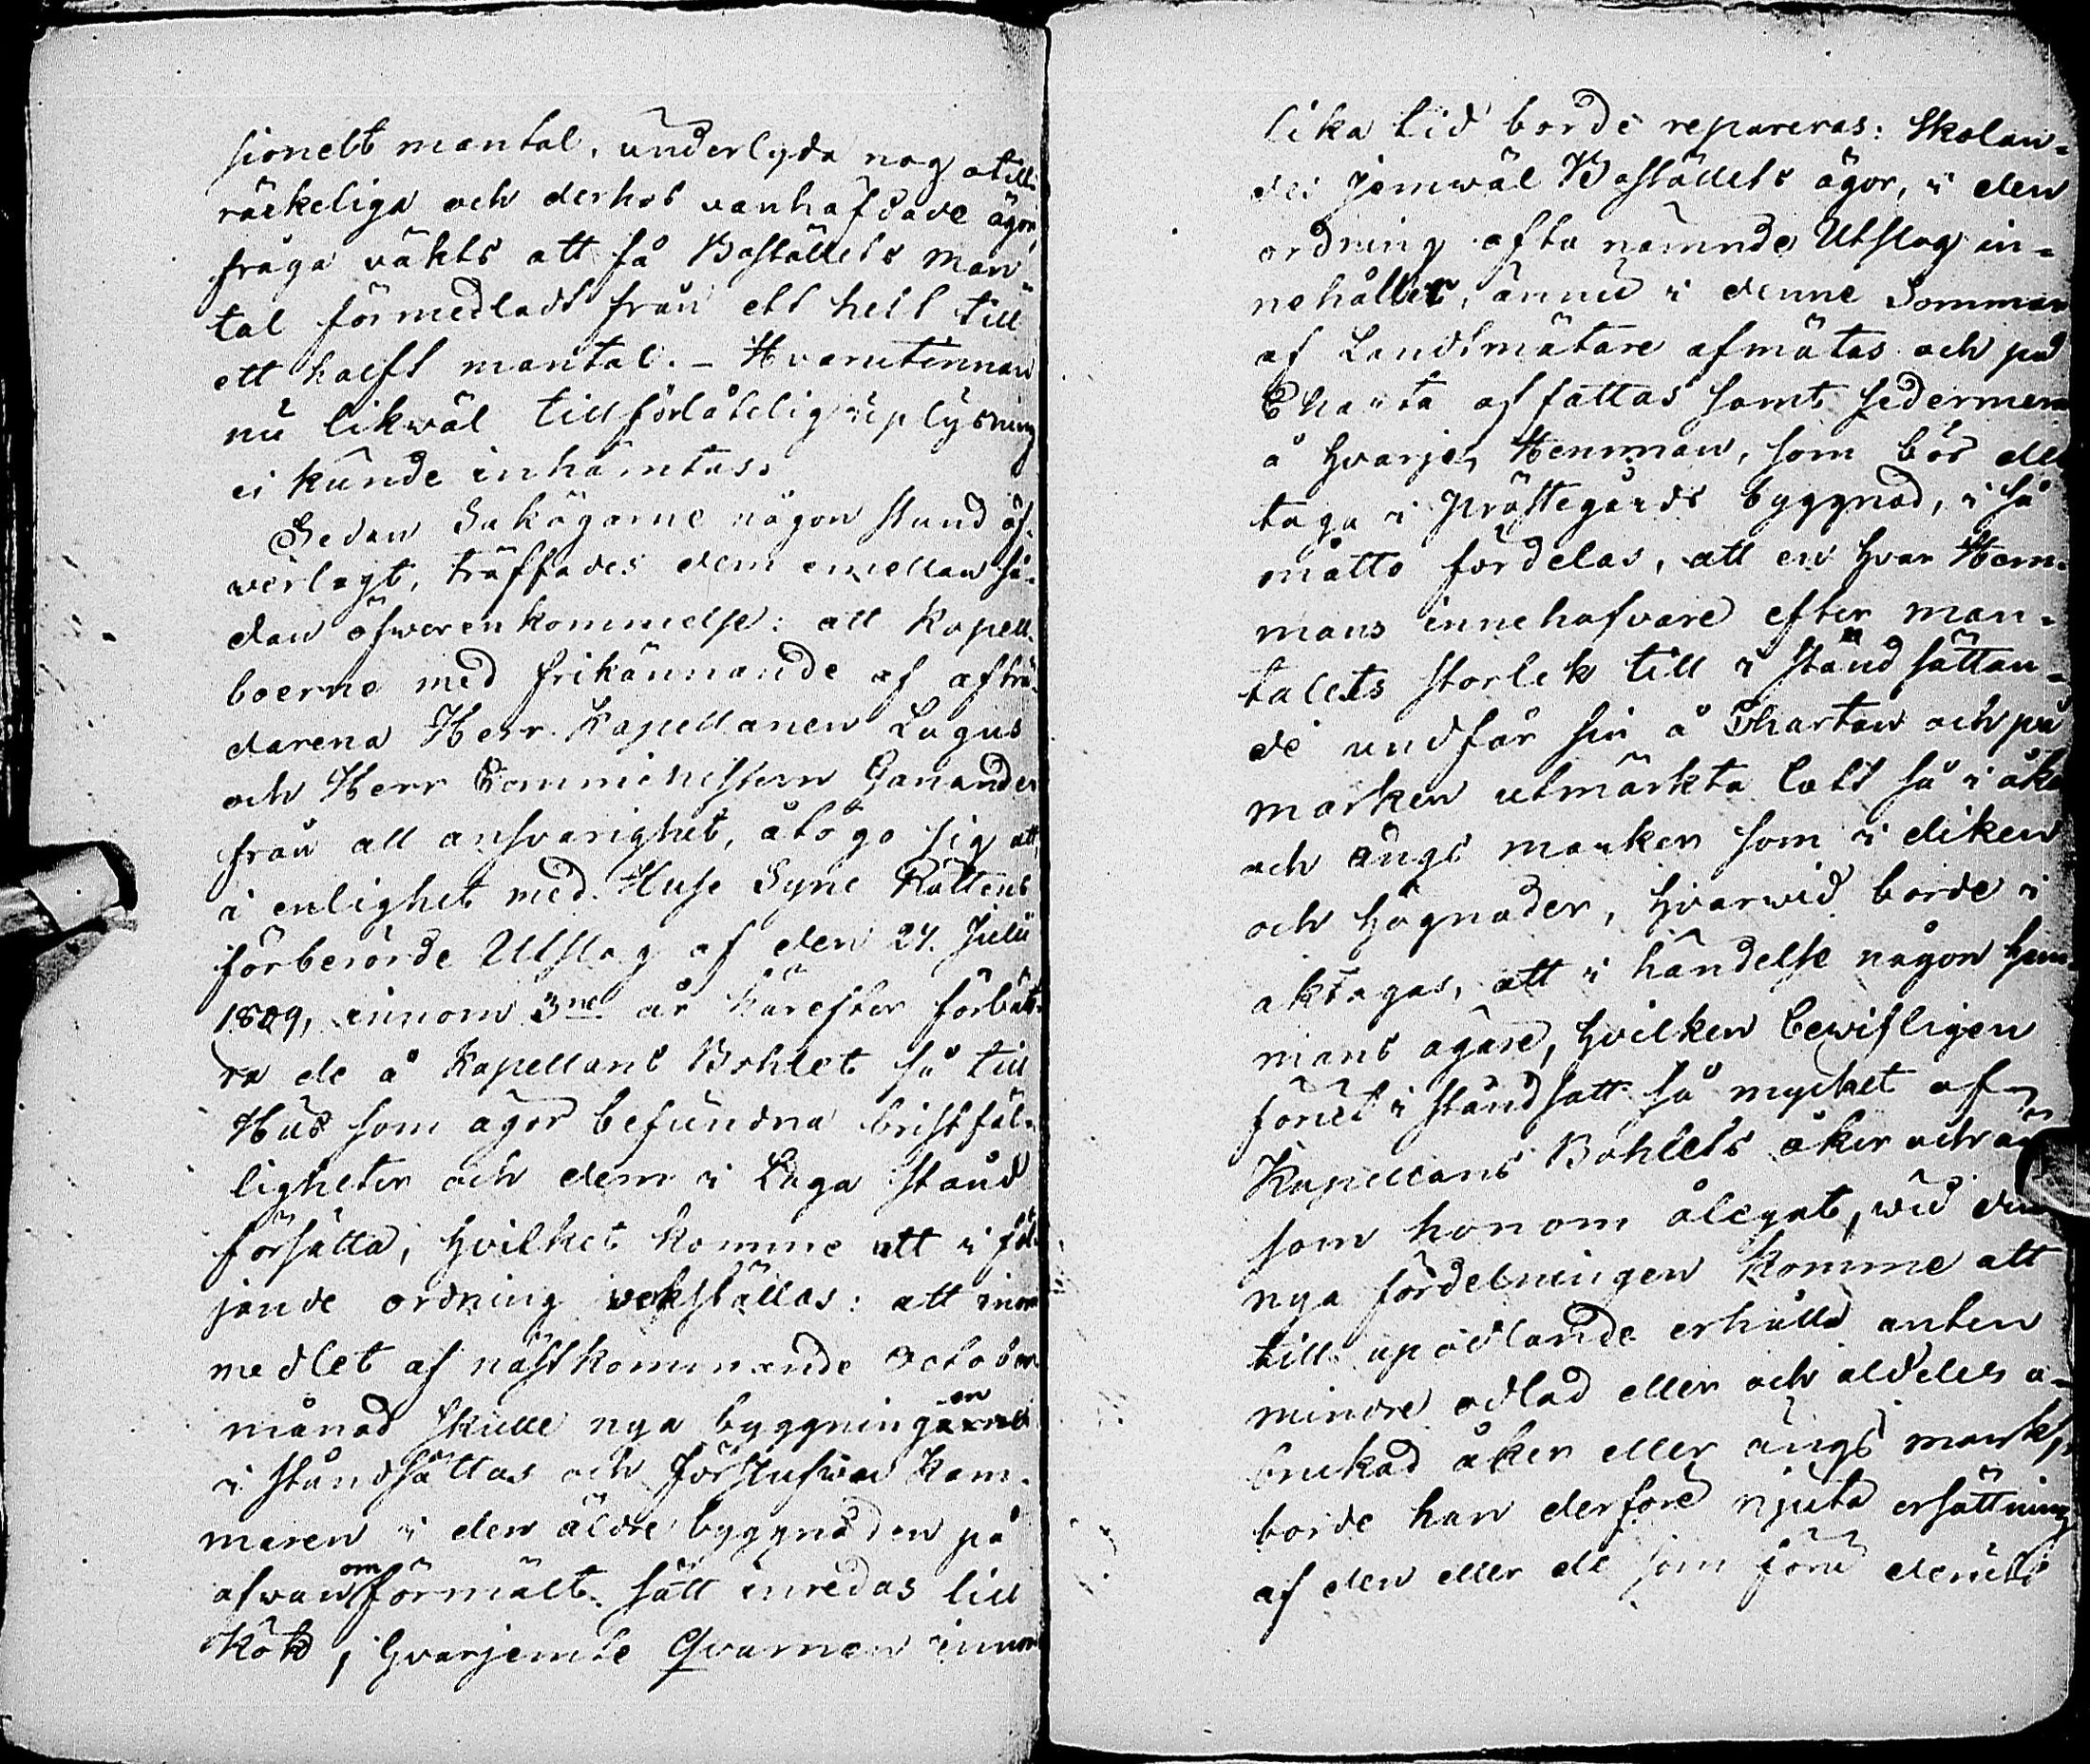 sionelt mantal, underlyda nog otill-
räckeliga och derhos vanhäfdade ägor,
fråga väkts att få Boställets man-
tal förmedladt från ett helt till
ett halft mantal. - Hvarutinnan
nu likwäl tillförlåtelig uplysning
ei kunde inhämtas.
Sedan Sakägarne någon stund öf-
verlagt, träffades dem emellan så-
dan öfwerenkommelse: att Kapell-
boerne med frikännande af afträ-
darena Herr Kapellanen Lagus
och Herr Comministern Ganander
från all ansvarighet, åtogo sig att
i enlighet med Huse Syne Rättens
förberörde Utslag af den 24. Julii
1809, innom 3ne år härefter förbätt-
ra de å Kapellans Bohlet så till
Hus som ägor befundna bristfäl-
ligheter och dem i Laga stånd
försätta, hvilket komme att i föl-
jande ordning verkställas: att inom
medlet af nästkommande October
månad skulle nya byggningen
i ståndsättas och Förstufwu Kam-
maren i den äldre byggnaden på
ofwanomförmält sätt inredas till
Kök, hvarjemte Qvarnen innom
lika tid borde repareras: Skolan-
des jemwäl Boställets ägor, i den
ordning ofta nämnde Utslag in-
nehåller, ännu i denne Sommar
af Landtmätare afmätas och på
Charta affattas samt sedermera
å hvarje Hemman, som bör del-
taga i Prästegårds byggnad, i så
måtto fördelas, att en hvar Hem-
mans innehafvare efter man-
talets storlek till i stånd sättan-
de undfår sin å Chartan och på
marken utmärkta lott så i åker
och ängs marken som i diken
och hägnader, hvarwid borde i
akttagas, att i händelse någon hem-
mans ägare, hvilken bewisligen
förut i ståndsatt så mycket af
Kapellans Bohlets åker och äng
som honom ålegat, wid den
nya fördelningen komme att
till upodlande erhålla anten
mindre odlad eller och aldeles o-
brukad åker eller ängs mark,
borde han derföre njuta ersättning
af den eller de som förut